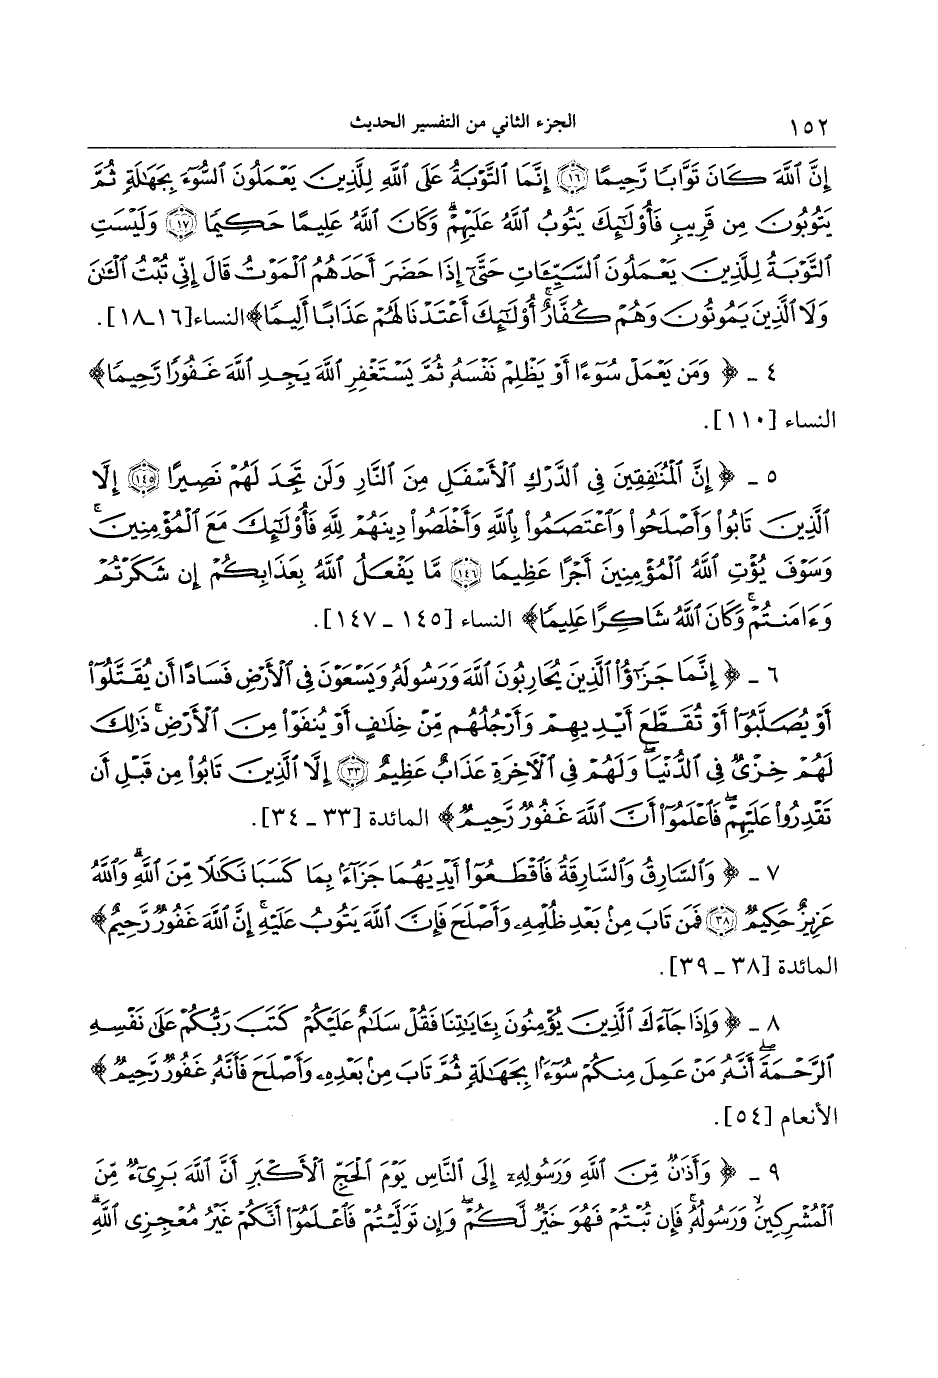 ١٥٢ الجزء الثاني من التفسير الحديث
إِنَّ ٱللَّهَ كَانَ تَوَّابًا رَّحِيمًا ﴿١٦﴾ إِنَّمَا ٱلتَّوْبَةُ عَلَى ٱللَّهِ لِلَّذِينَ يَعْمَلُونَ ٱلسُّوٓءَ بِجَهَٰلَةٍ ثُمَّ
يَتُوبُونَ مِن قَرِيبٍ فَأُو۟لَٰٓئِكَ يَتُوبُ ٱللَّهُ عَلَيْهِمْ ۗ وَكَانَ ٱللَّهُ عَلِيمًا حَكِيمًا ﴿١٧﴾ وَلَيْسَتِ
ٱلتَّوْبَةُ لِلَّذِينَ يَعْمَلُونَ ٱلسَّيِّـَٔاتِ حَتَّىٰٓ إِذَا حَضَرَ أَحَدَهُمُ ٱلْمَوْتُ قَالَ إِنِّى تُبْتُ ٱلْـَٰٔنَ
وَلَا ٱلَّذِينَ يَمُوتُونَ وَهُمْ كُفَّارٌ ۚ أُو۟لَٰٓئِكَ أَعْتَدْنَا لَهُمْ عَذَابًا أَلِيمًا﴾ النساء [١٦ـ١٨].
٤ ـ ﴿ وَمَن يَعْمَلْ سُوٓءًا أَوْ يَظْلِمْ نَفْسَهُۥ ثُمَّ يَسْتَغْفِرِ ٱللَّهَ يَجِدِ ٱللَّهَ غَفُورًا رَّحِيمًا﴾
النساء [١١٠].
٥ ـ ﴿ إِنَّ ٱلْمُنَٰفِقِينَ فِى ٱلدَّرْكِ ٱلْأَسْفَلِ مِنَ ٱلنَّارِ وَلَن تَجِدَ لَهُمْ نَصِيرًا ﴿١٤٥﴾ إِلَّا
ٱلَّذِينَ تَابُوا۟ وَأَصْلَحُوا۟ وَٱعْتَصَمُوا۟ بِٱللَّهِ وَأَخْلَصُوا۟ دِينَهُمْ لِلَّهِ فَأُو۟لَٰٓئِكَ مَعَ ٱلْمُؤْمِنِينَ ۖ
وَسَوْفَ يُؤْتِ ٱللَّهُ ٱلْمُؤْمِنِينَ أَجْرًا عَظِيمًا ﴿١٤٦﴾ مَّا يَفْعَلُ ٱللَّهُ بِعَذَابِكُمْ إِن شَكَرْتُمْ
وَءَامَنتُمْ ۚ وَكَانَ ٱللَّهُ شَاكِرًا عَلِيمًا﴾ النساء [١٤٥ ـ ١٤٧].
٦ ـ ﴿ إِنَّمَا جَزَٰٓؤُا۟ ٱلَّذِينَ يُحَارِبُونَ ٱللَّهَ وَرَسُولَهُۥ وَيَسْعَوْنَ فِى ٱلْأَرْضِ فَسَادًا أَن يُقَتَّلُوٓا۟
أَوْ يُصَلَّبُوٓا۟ أَوْ تُقَطَّعَ أَيْدِيهِمْ وَأَرْجُلُهُم مِّنْ خِلَٰفٍ أَوْ يُنفَوْا۟ مِنَ ٱلْأَرْضِ ۚ ذَٰلِكَ
لَهُمْ خِزْىٌ فِى ٱلدُّنْيَا ۖ وَلَهُمْ فِى ٱلْـَٔاخِرَةِ عَذَابٌ عَظِيمٌ ﴿٣٣﴾ إِلَّا ٱلَّذِينَ تَابُوا۟ مِن قَبْلِ أَن
تَقْدِرُوا۟ عَلَيْهِمْ ۖ فَٱعْلَمُوٓا۟ أَنَّ ٱللَّهَ غَفُورٌ رَّحِيمٌ﴾ المائدة [٣٣ ـ ٣٤].
٧ ـ ﴿ وَٱلسَّارِقُ وَٱلسَّارِقَةُ فَٱقْطَعُوٓا۟ أَيْدِيَهُمَا جَزَآءًۢ بِمَا كَسَبَا نَكَٰلًا مِّنَ ٱللَّهِ ۗ وَٱللَّهُ
عَزِيزٌ حَكِيمٌ ﴿٣٨﴾ فَمَن تَابَ مِنۢ بَعْدِ ظُلْمِهِۦ وَأَصْلَحَ فَإِنَّ ٱللَّهَ يَتُوبُ عَلَيْهِ ۗ إِنَّ ٱللَّهَ غَفُورٌ رَّحِيمٌ﴾
المائدة [٣٨ ـ ٣٩].
٨ ـ ﴿ وَإِذَا جَآءَكَ ٱلَّذِينَ يُؤْمِنُونَ بِـَٔايَٰتِنَا فَقُلْ سَلَٰمٌ عَلَيْكُمْ كَتَبَ رَبُّكُمْ عَلَىٰ نَفْسِهِ
ٱلرَّحْمَةَ ۖ أَنَّهُۥ مَنْ عَمِلَ مِنكُمْ سُوٓءًۢا بِجَهَٰلَةٍ ثُمَّ تَابَ مِنۢ بَعْدِهِۦ وَأَصْلَحَ فَأَنَّهُۥ غَفُورٌ رَّحِيمٌ﴾
الأنعام [٥٤].
٩ ـ ﴿ وَأَذَٰنٌ مِّنَ ٱللَّهِ وَرَسُولِهِۦٓ إِلَى ٱلنَّاسِ يَوْمَ ٱلْحَجِّ ٱلْأَكْبَرِ أَنَّ ٱللَّهَ بَرِىٓءٌ مِّنَ
ٱلْمُشْرِكِينَ ۙ وَرَسُولُهُۥ ۚ فَإِن تُبْتُمْ فَهُوَ خَيْرٌ لَّكُمْ ۖ وَإِن تَوَلَّيْتُمْ فَٱعْلَمُوٓا۟ أَنَّكُمْ غَيْرُ مُعْجِزِى ٱللَّهِ ۗ